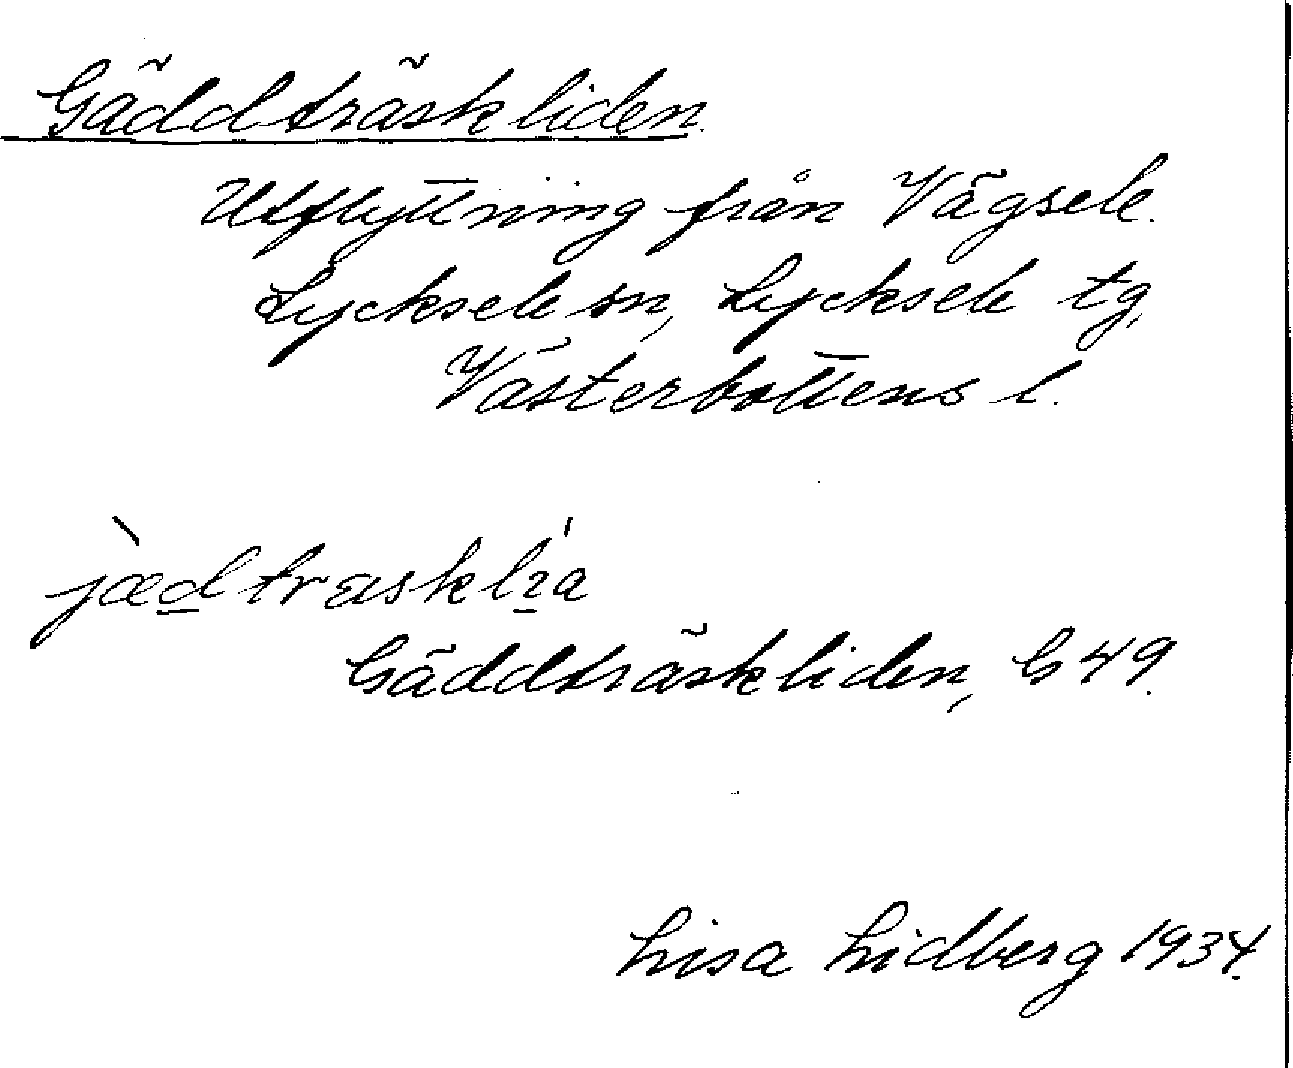 Gäddträskliden.
Utflyttning från Vägsele.
Lycksele sn, Lycksele tg,
Västerbottens l.
jæ̀dtræsklı́a
Gäddträskliden, G 49.
Lisa Lidberg 1934.